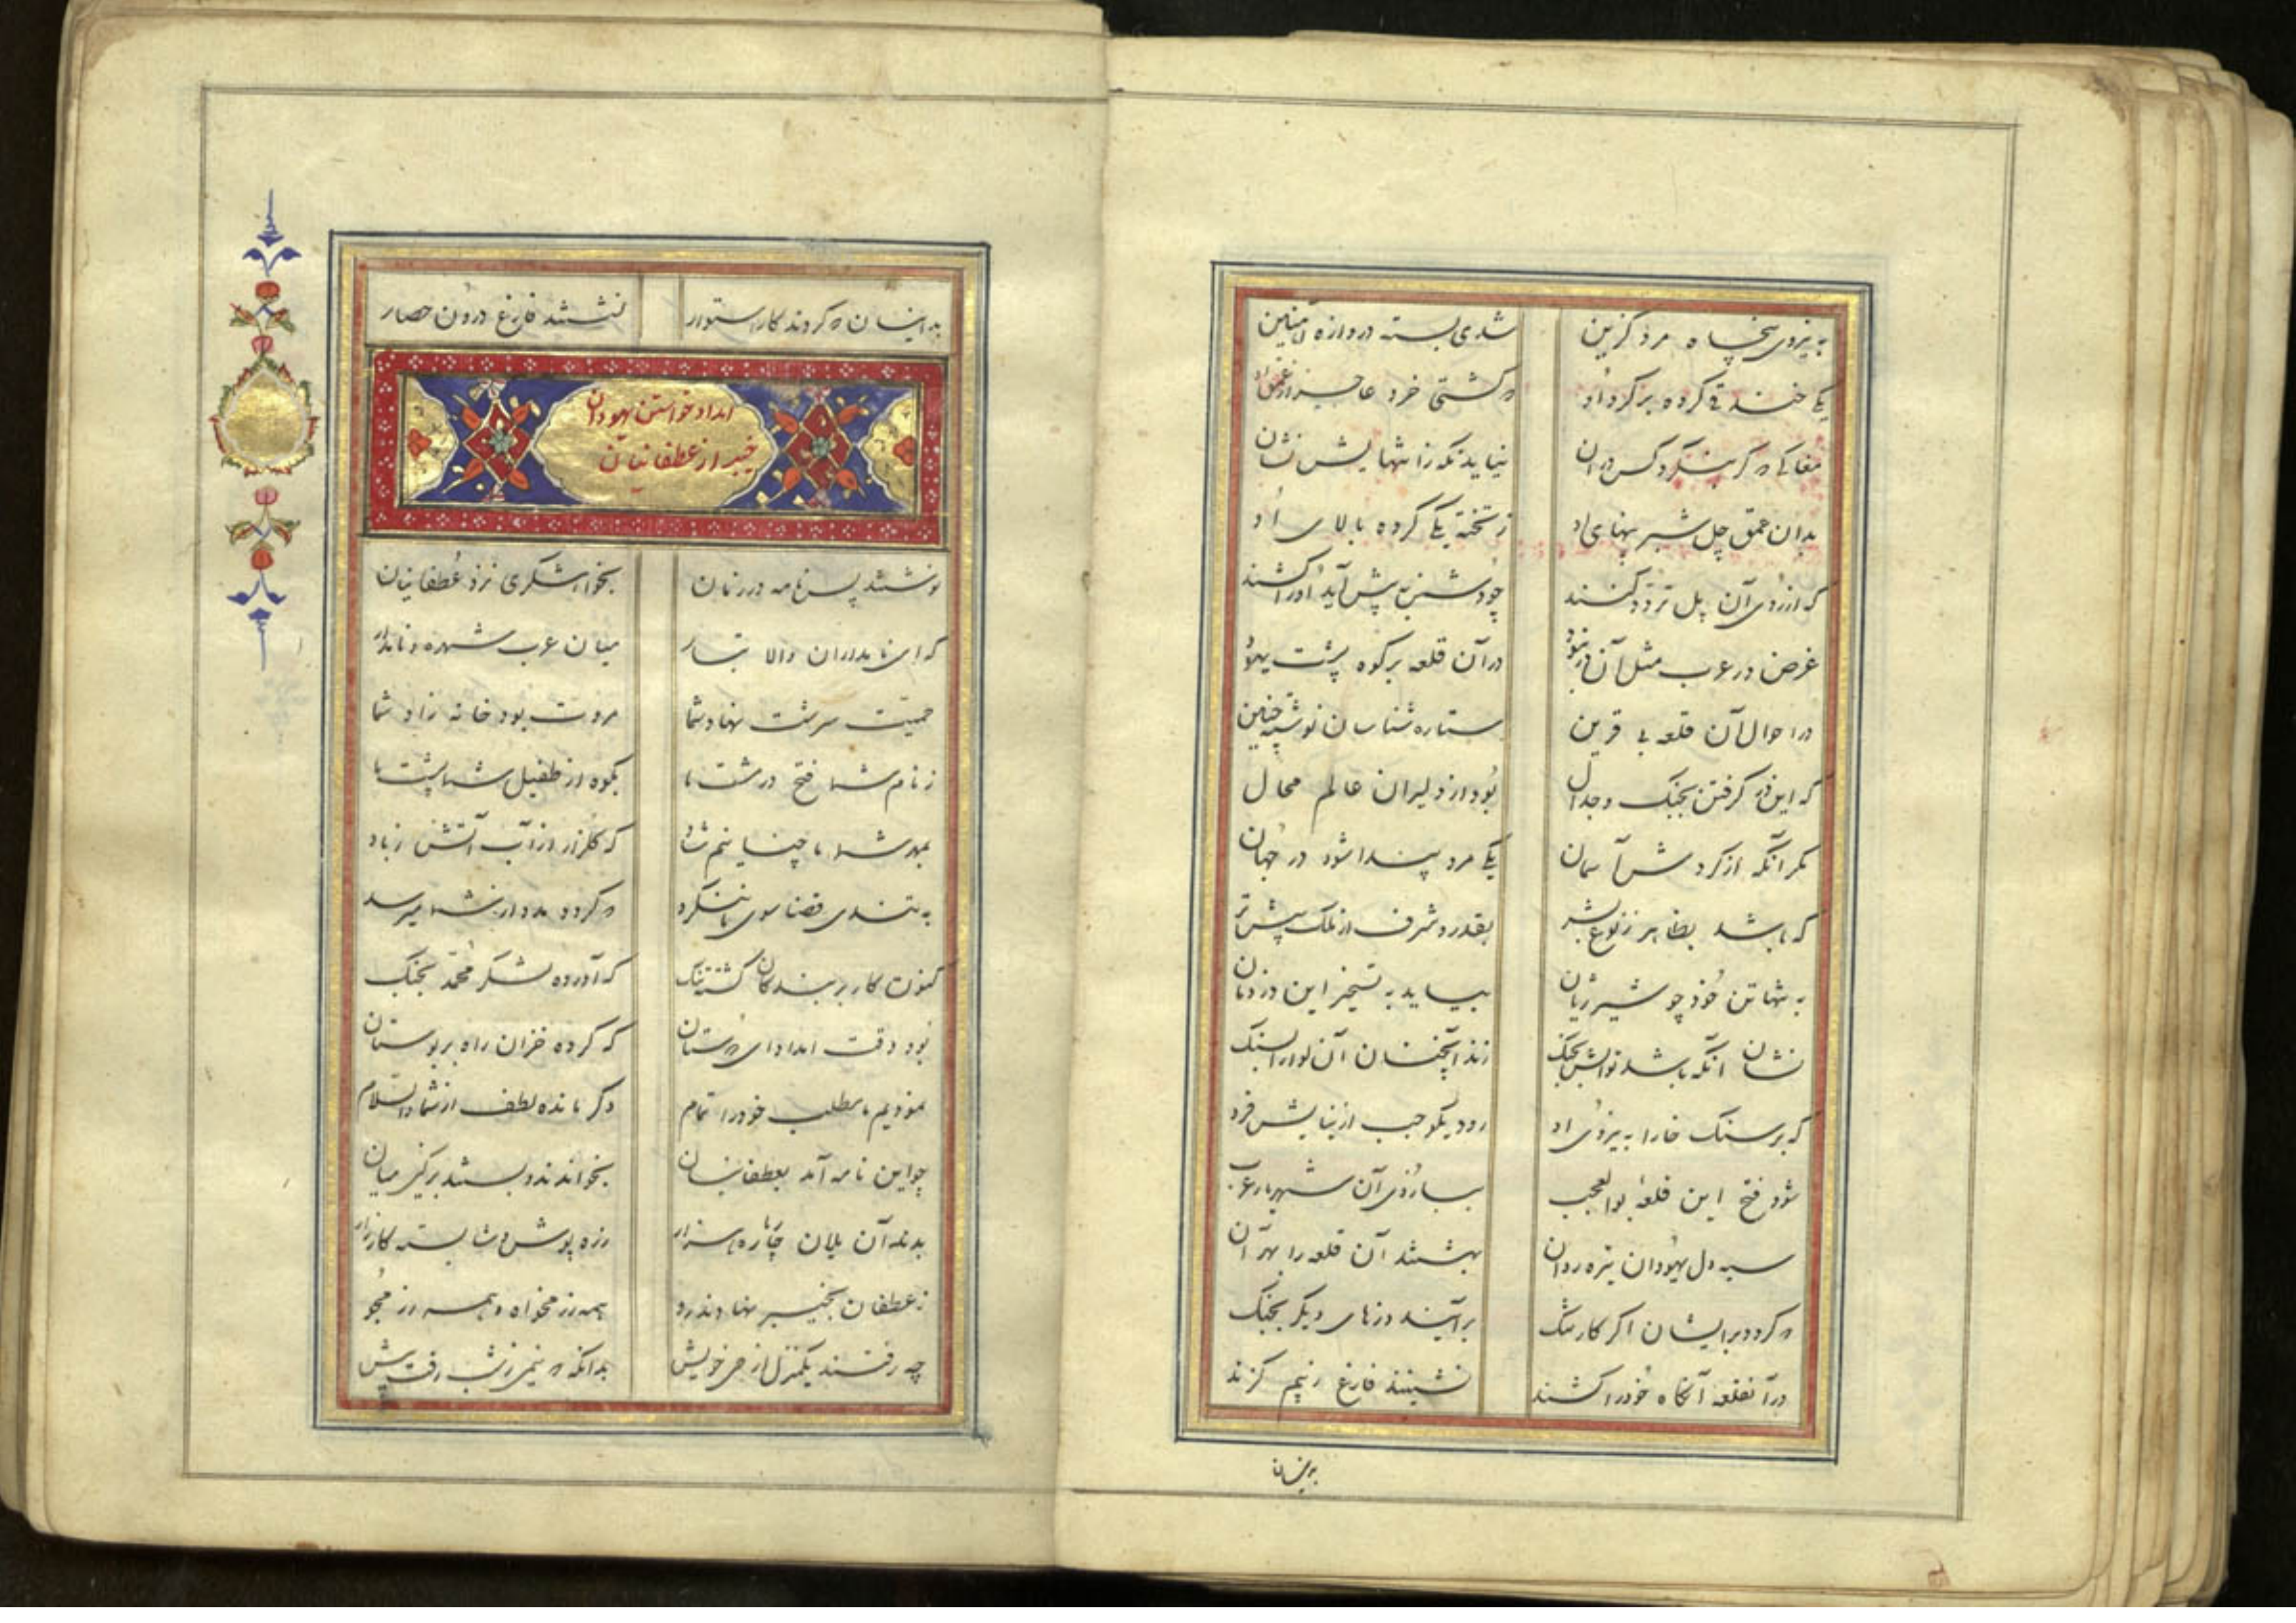 به نیروی پنجاه مرد گزین شدی بسته دروازه آهنین
یکی خندقی کرده بر گرد او که گشتی خرد عاجز از عمق او
مغاکی که گر بنگرد کس در آن نیاید نگه زانتهایش نشان
بدان عمق چل شبر پهنای او ز تخته یکی کرده بالای او
که از روی آن پل تردد کنند چو دشمن به پیش آید او را کشند
غرض در عرب مثل آن دز نبود در آن قلعه بر کوه پشت یهود
در احوال آن قلعه بی قرین ستاره شناسان نوشته چنین
که این دز گرفتن بجنک و جدال بود از دلیران عالم محال
مگر آنکه از کردش آسمان یکی مرد پیدا شود در جهان
که باشد بظاهر ز نوع بشر بقدر و شرف از ملک پیش تر
به تنها تن خود چو شیر ژیان بیاید به تسخیر این دز دمان
نشان آنکه باشد بجنک زند آنچنان آن لوا را بسنک
که بر سنک خارا به نیروی او رود یکوجب از بنایش فرو
شود فتح این قلعه بوالعجب ببازوی آن شهریار عرب
سیه دل یهودان تیره روان بهشتند آن قلعه را بهر آن
که کردد برایشان اگر کار تنک برآیند دزهای دیگر بجنک
در آنقلعه آنگاه خود را کشند نشینند فارغ ز بیم کزند
بدینسان
بدینسان که کردند کار استوار نشستند فارغ درون حصار
امداد خواستن یهودان
خیبر از غطفانیان
نوشتند پس نامه در زمان بخواهشگری نزد غطفانیان
که ای نامداران والا تبار میان عرب شهره و نامدار
حمیت سرشت نهاد شما مروت بود خانه زاد شما
ز نام شما فتح در مشت ما بکوه از طفیل شما پشت ما
بمهر شما ما چنانیم شاد که کلزار از آب آتش ز باد
به تندی قضا سوی ما ننگرد که کردد مدد از شما میرسد
کنون کار بر بندگان گشته تنک که آورده لشکر محمد بجنک
بود وقت امداد ای دوستان که کرده خزان راه بر بوستان
نمودیم ما مطلب خود را تمام دگر مانده لطف از شما والسلام
چو این نامه آمد بغطفانیان بخواندند و بستند بر کین میان
بدند آن یلان چار باره هزار زره پوش و شایسته کارزار
ز غطفان بخیبر نهادند رو همه رزمخواه و همه رزمجو
چه رفتند یکمنزل از حی خویش بدانگه که نیمی ز شب رفت پیش